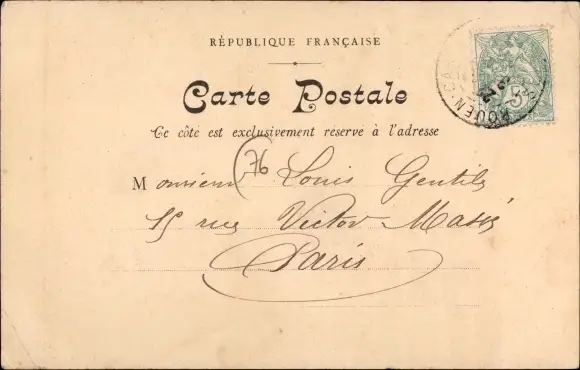 RÉPUBLIQUE FRANÇAISE
Carte Postale
Ce côté est exclusivement réservé à l'adresse
76
Monsieur Louis Gentils
15 rue Victor Massé
Paris
ROUEN-GARE
5